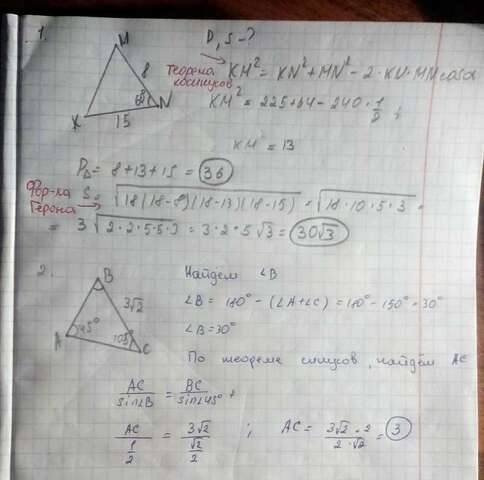 1.
P, S - ?
M
8
60°
K
N
15
Теорема косинусов
KM² = KN² + MN² - 2 · KN · MN cosα
KM² = 225 + 64 - 240 · 1/2 ;
KM = 13
P∆ = 8 + 13 + 15 = 36
Фор-ла Герона
S = √18(18-8)(18-13)(18-15) = √18·10·5·3 =
= 3√2·2·5·5·3 = 3·2·5√3 = 30√3
2.
B
3√2
A
45°
105°
C
Найдём ∠B
∠B = 180° - (∠A+∠C) = 180° - 150° = 30°
∠B = 30°
По теореме синусов, найдём AC
AC/sin∠B = BC/sin∠45°
AC/(1/2) = 3√2/(√2/2) ; AC = 3√2 · 2/2 · √2 = 3